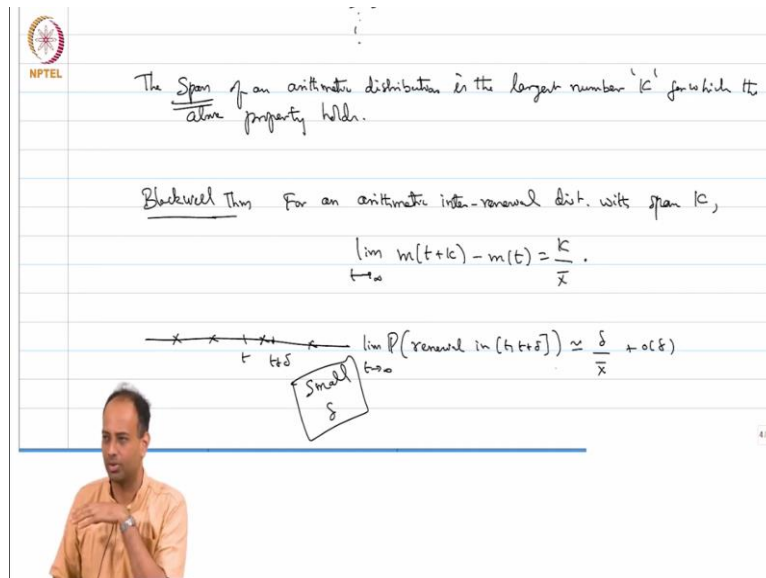 NPTEL
The Span of an arithmetic distribution is the largest number 'K' for which the
above property holds.
Blackwell Thm For an arithmetic inter-renewal dist. with span K,
lim m(t+K) - m(t) = K / x̄ .
t→∞
t t+δ lim P(renewal in (t, t+δ]) ≃ δ / x̄ + o(δ)
t→∞
Small
δ